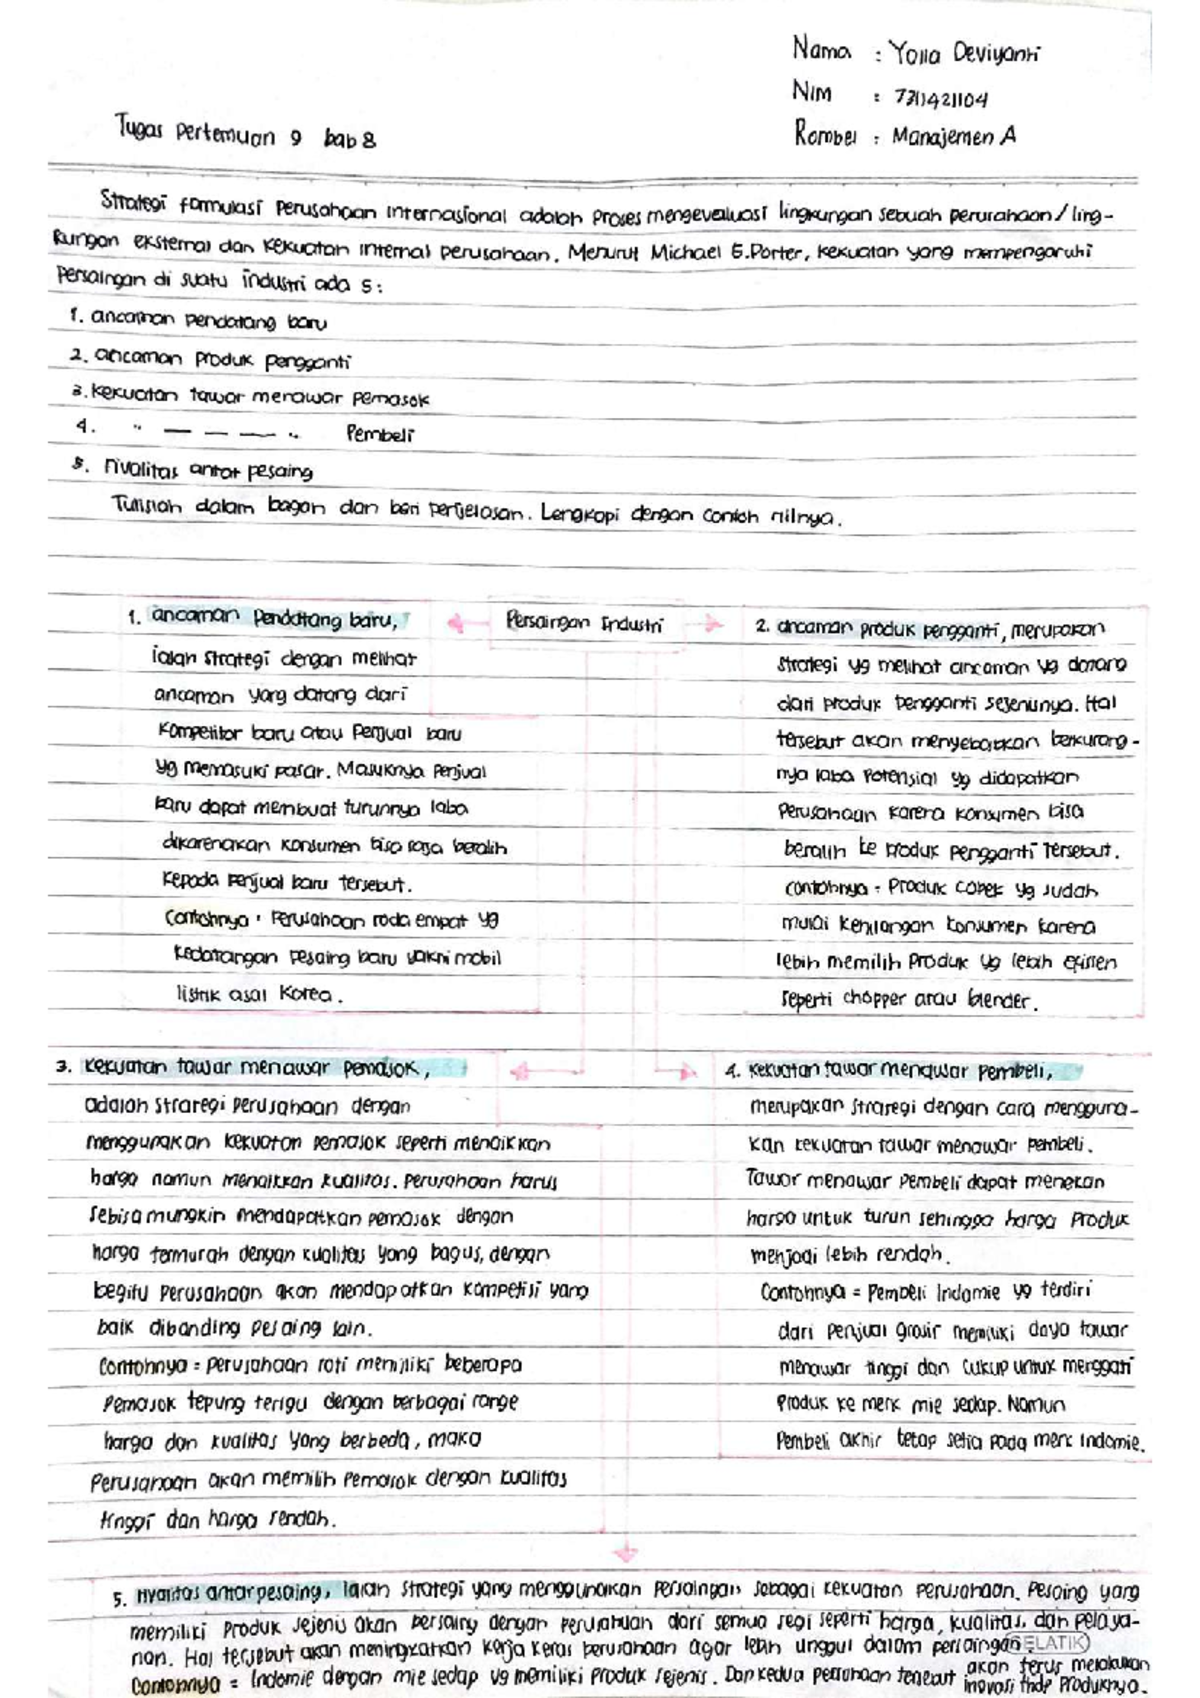 Nama : Yolla Deviyanti
Nim : 7311421104
Tugas Pertemuan 9 bab 8
Rombel : Manajemen A
Strategi formulasi Perusahaan Internasional adalah proses mengevaluasi lingkungan sebuah perusahaan / ling-
kungan eksternal dan kekuatan internal perusahaan. Menurut Michael E.Porter, kekuatan yang mempengaruhi
Persaingan di suatu industri ada 5:
1. ancaman pendatang baru
2. ancaman produk pengganti
3. Kekuatan tawar menawar Pemasok
4. " — — — " Pembeli
5. rivalitas antar pesaing
Tulislah dalam bagan dan beri penjelasan. Lengkapi dengan contoh riilnya.
Persaingan Industri
1. ancaman Pendatang baru,
ialah strategi dengan melihat
ancaman yang datang dari
Kompetitor baru atau Penjual baru
yg memasuki pasar. Masuknya Penjual
baru dapat membuat turunnya laba
dikarenakan konsumen bisa saja beralih
kepada penjual baru tersebut.
Contohnya : Perusahaan roda empat yg
kedatangan pesaing baru yakni mobil
listrik asal Korea.
2. ancaman produk pengganti, merupakan
strategi yg melihat ancaman yg datang
dari produk pengganti sejenisnya. Hal
tersebut akan menyebabkan berkurang-
nya laba potensial yg didapatkan
Perusahaan karena konsumen bisa
beralih ke produk pengganti tersebut.
contohnya = Produk cobek yg sudah
mulai kehilangan konsumen karena
lebih memilih produk yg lebih efisien
seperti chopper atau blender.
3. kekuatan tawar menawar pemasok,
adalah strategi perusahaan dengan
menggunakan kekuatan pemasok seperti menaikkan
harga namun menaikkan kualitas. Perusahaan harus
sebisa mungkin mendapatkan pemasok dengan
harga termurah dengan kualitas yang bagus, dengan
begitu perusahaan akan mendapatkan kompetisi yang
baik dibanding pesaing lain.
Contohnya = perusahaan roti memiliki beberapa
Pemasok tepung terigu dengan berbagai range
harga dan kualitas yang berbeda, maka
Perusahaan akan memilih Pemasok dengan kualitas
tinggi dan harga rendah.
4. kekuatan tawar menawar Pembeli,
merupakan strategi dengan cara mengguna-
kan kekuatan tawar menawar pembeli.
Tawar menawar pembeli dapat menekan
harga untuk turun sehingga harga Produk
menjadi lebih rendah.
Contohnya = Pembeli Indomie yg terdiri
dari penjual grosir memiliki daya tawar
menawar tinggi dan cukup untuk mengganti
Produk ke merk mie sedap. Namun
Pembeli akhir tetap setia pada merk Indomie.
5. rivalitas antar pesaing, ialah strategi yang menggunakan Persaingan sebagai kekuatan perusahaan. Pesaing yang
memiliki Produk sejenis akan bersaing dengan perusahaan dari semua segi seperti harga, kualitas, dan pelaya-
nan. Hal tersebut akan meningkatkan kerja keras perusahaan agar lebih unggul dalam persaingan
SELATIK
Contohnya = Indomie dengan mie sedap yg memiliki Produk sejenis. Dan kedua perusahaan tersebut akan terus melakukan
inovasi thdp Produknya.